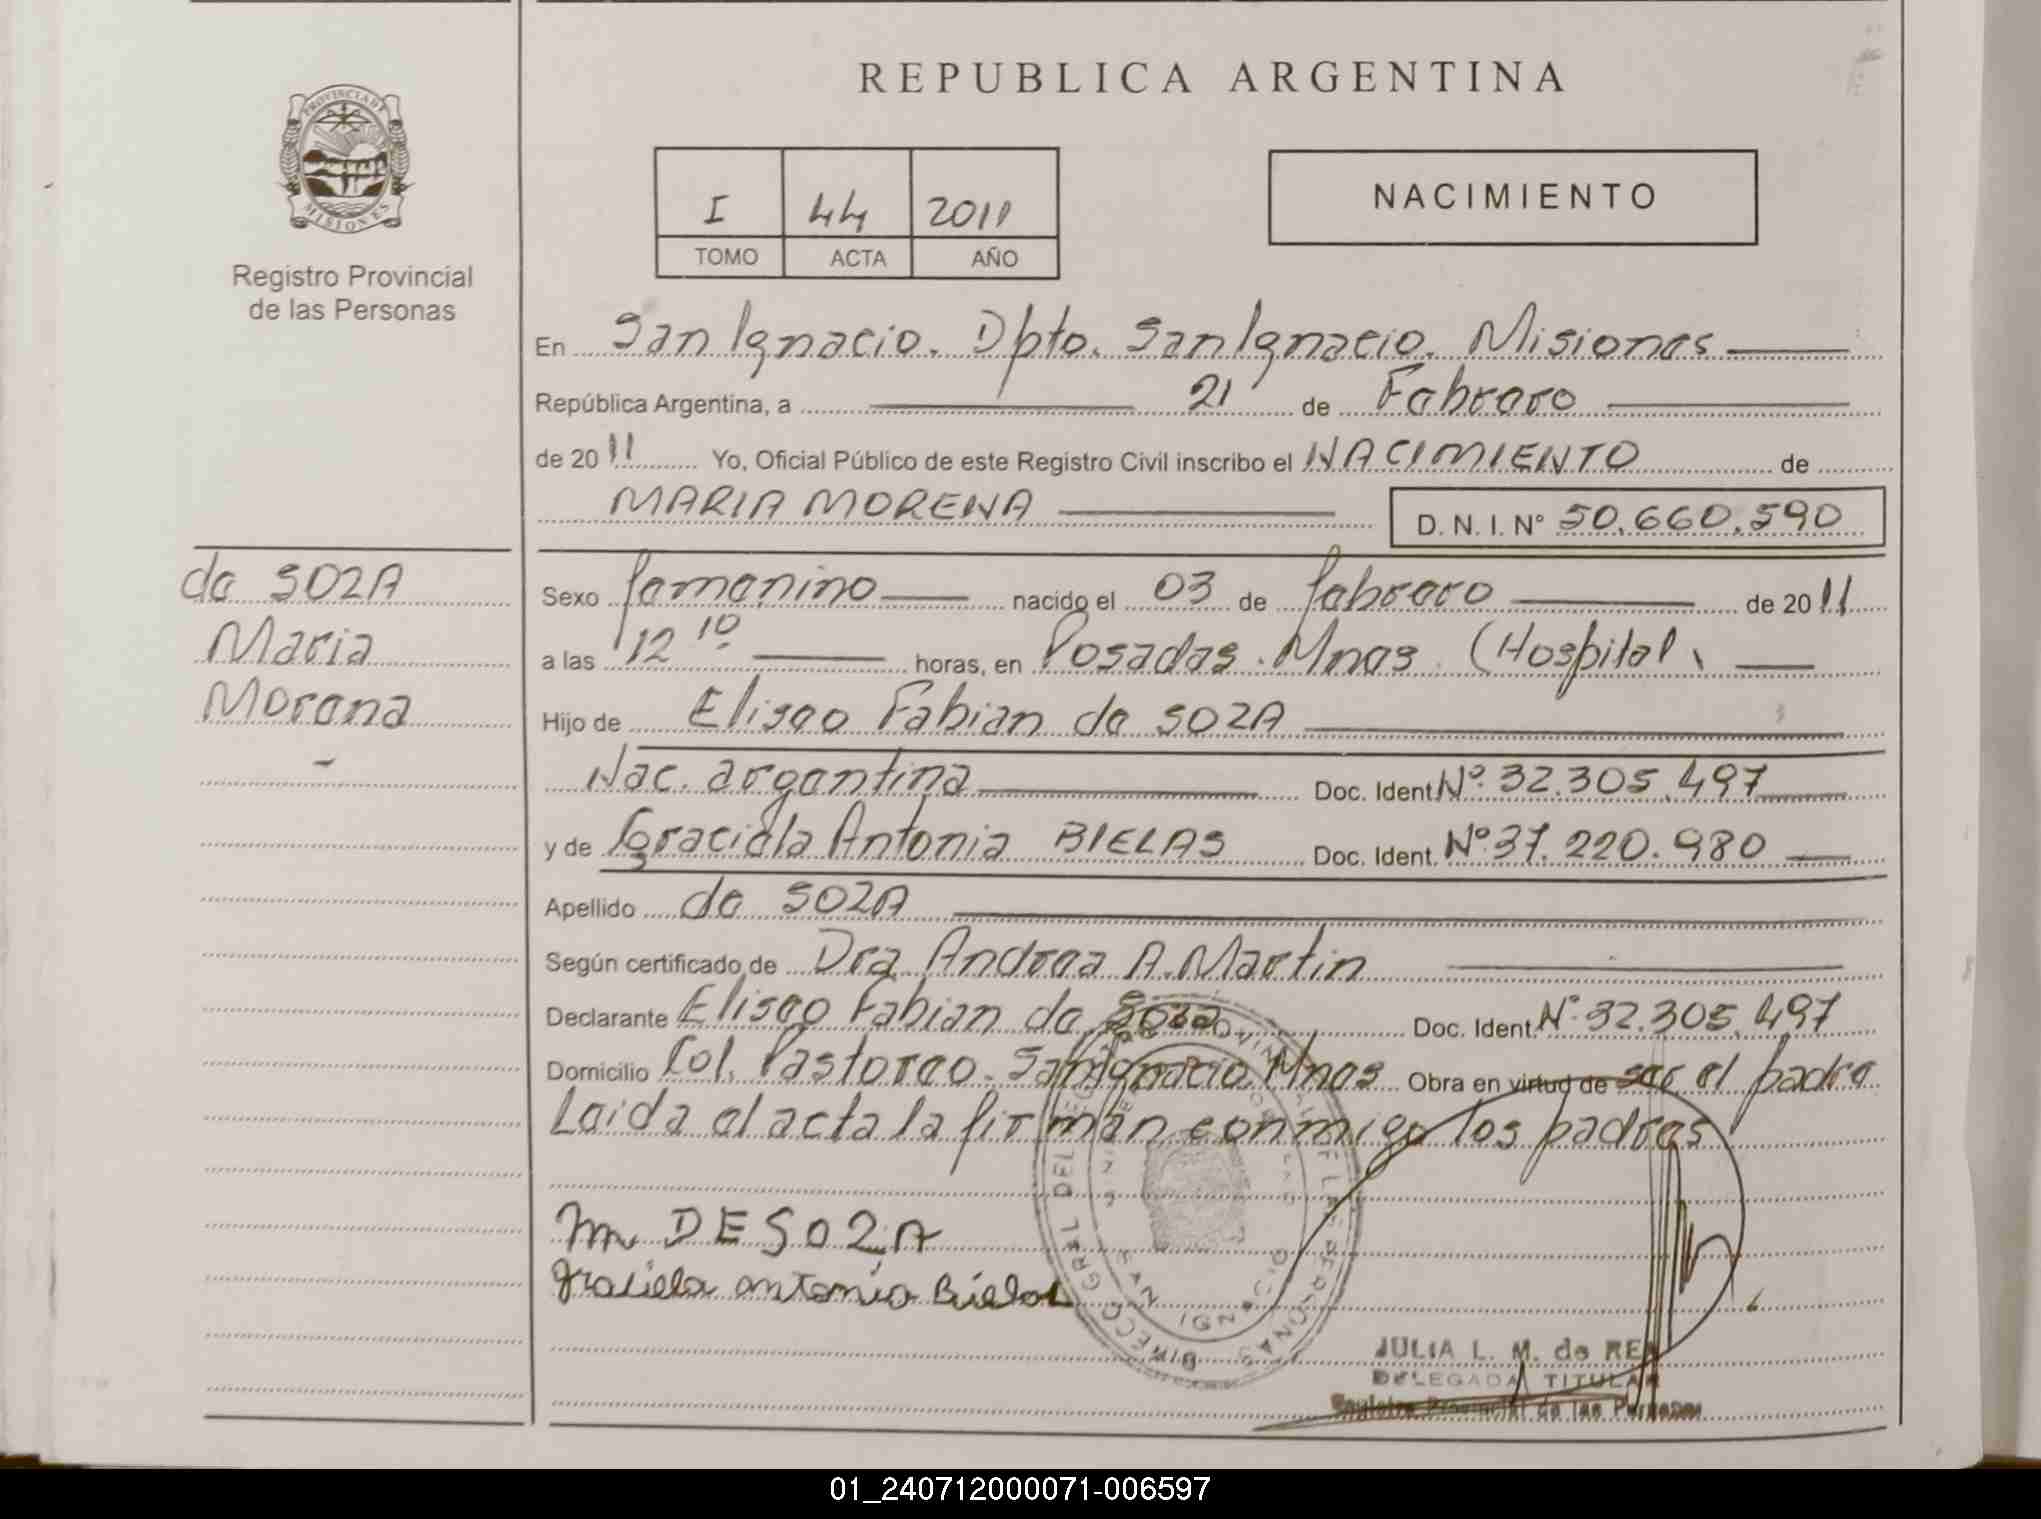 REPUBLICA ARGENTINA
PROVINCIA DE
MISIONES
Registro Provincial
de las Personas
I 44 2011
TOMO ACTA AÑO
NACIMIENTO
En San Ignacio. Dpto. San Ignacio. Misiones
República Argentina, a 21 de Febrero
de 2011 Yo, Oficial Público de este Registro Civil inscribo el NACIMIENTO de
MARIA MORENA D. N. I. N° 50.660.590
de SOZA
Maria
Morena
Sexo femenino nacido el 03 de febrero de 2011
a las 12 10 horas, en Posadas. Mnes. (Hospital,
Hijo de Eliseo Fabian de SOZA
Nac. argentina Doc. Ident N°. 32.305.497
y de Graciela Antonia BIELAS Doc. Ident. N° 37.220.980
Apellido de SOZA
Según certificado de Dra Andrea A. Martin
Declarante Eliseo Fabian de Soza Doc. Ident. N°. 32.305.497
Domicilio Col. Pastoreo. San Ignacio Mnes Obra en virtud de ser el padre
Leida el acta la firman conmigo los padres
m DE SOZA
Graciela antonia Bielas
JULIA L. M. de REA
DELEGADA TITULAR
Registro Provincial de las Personas
01_240712000071-006597